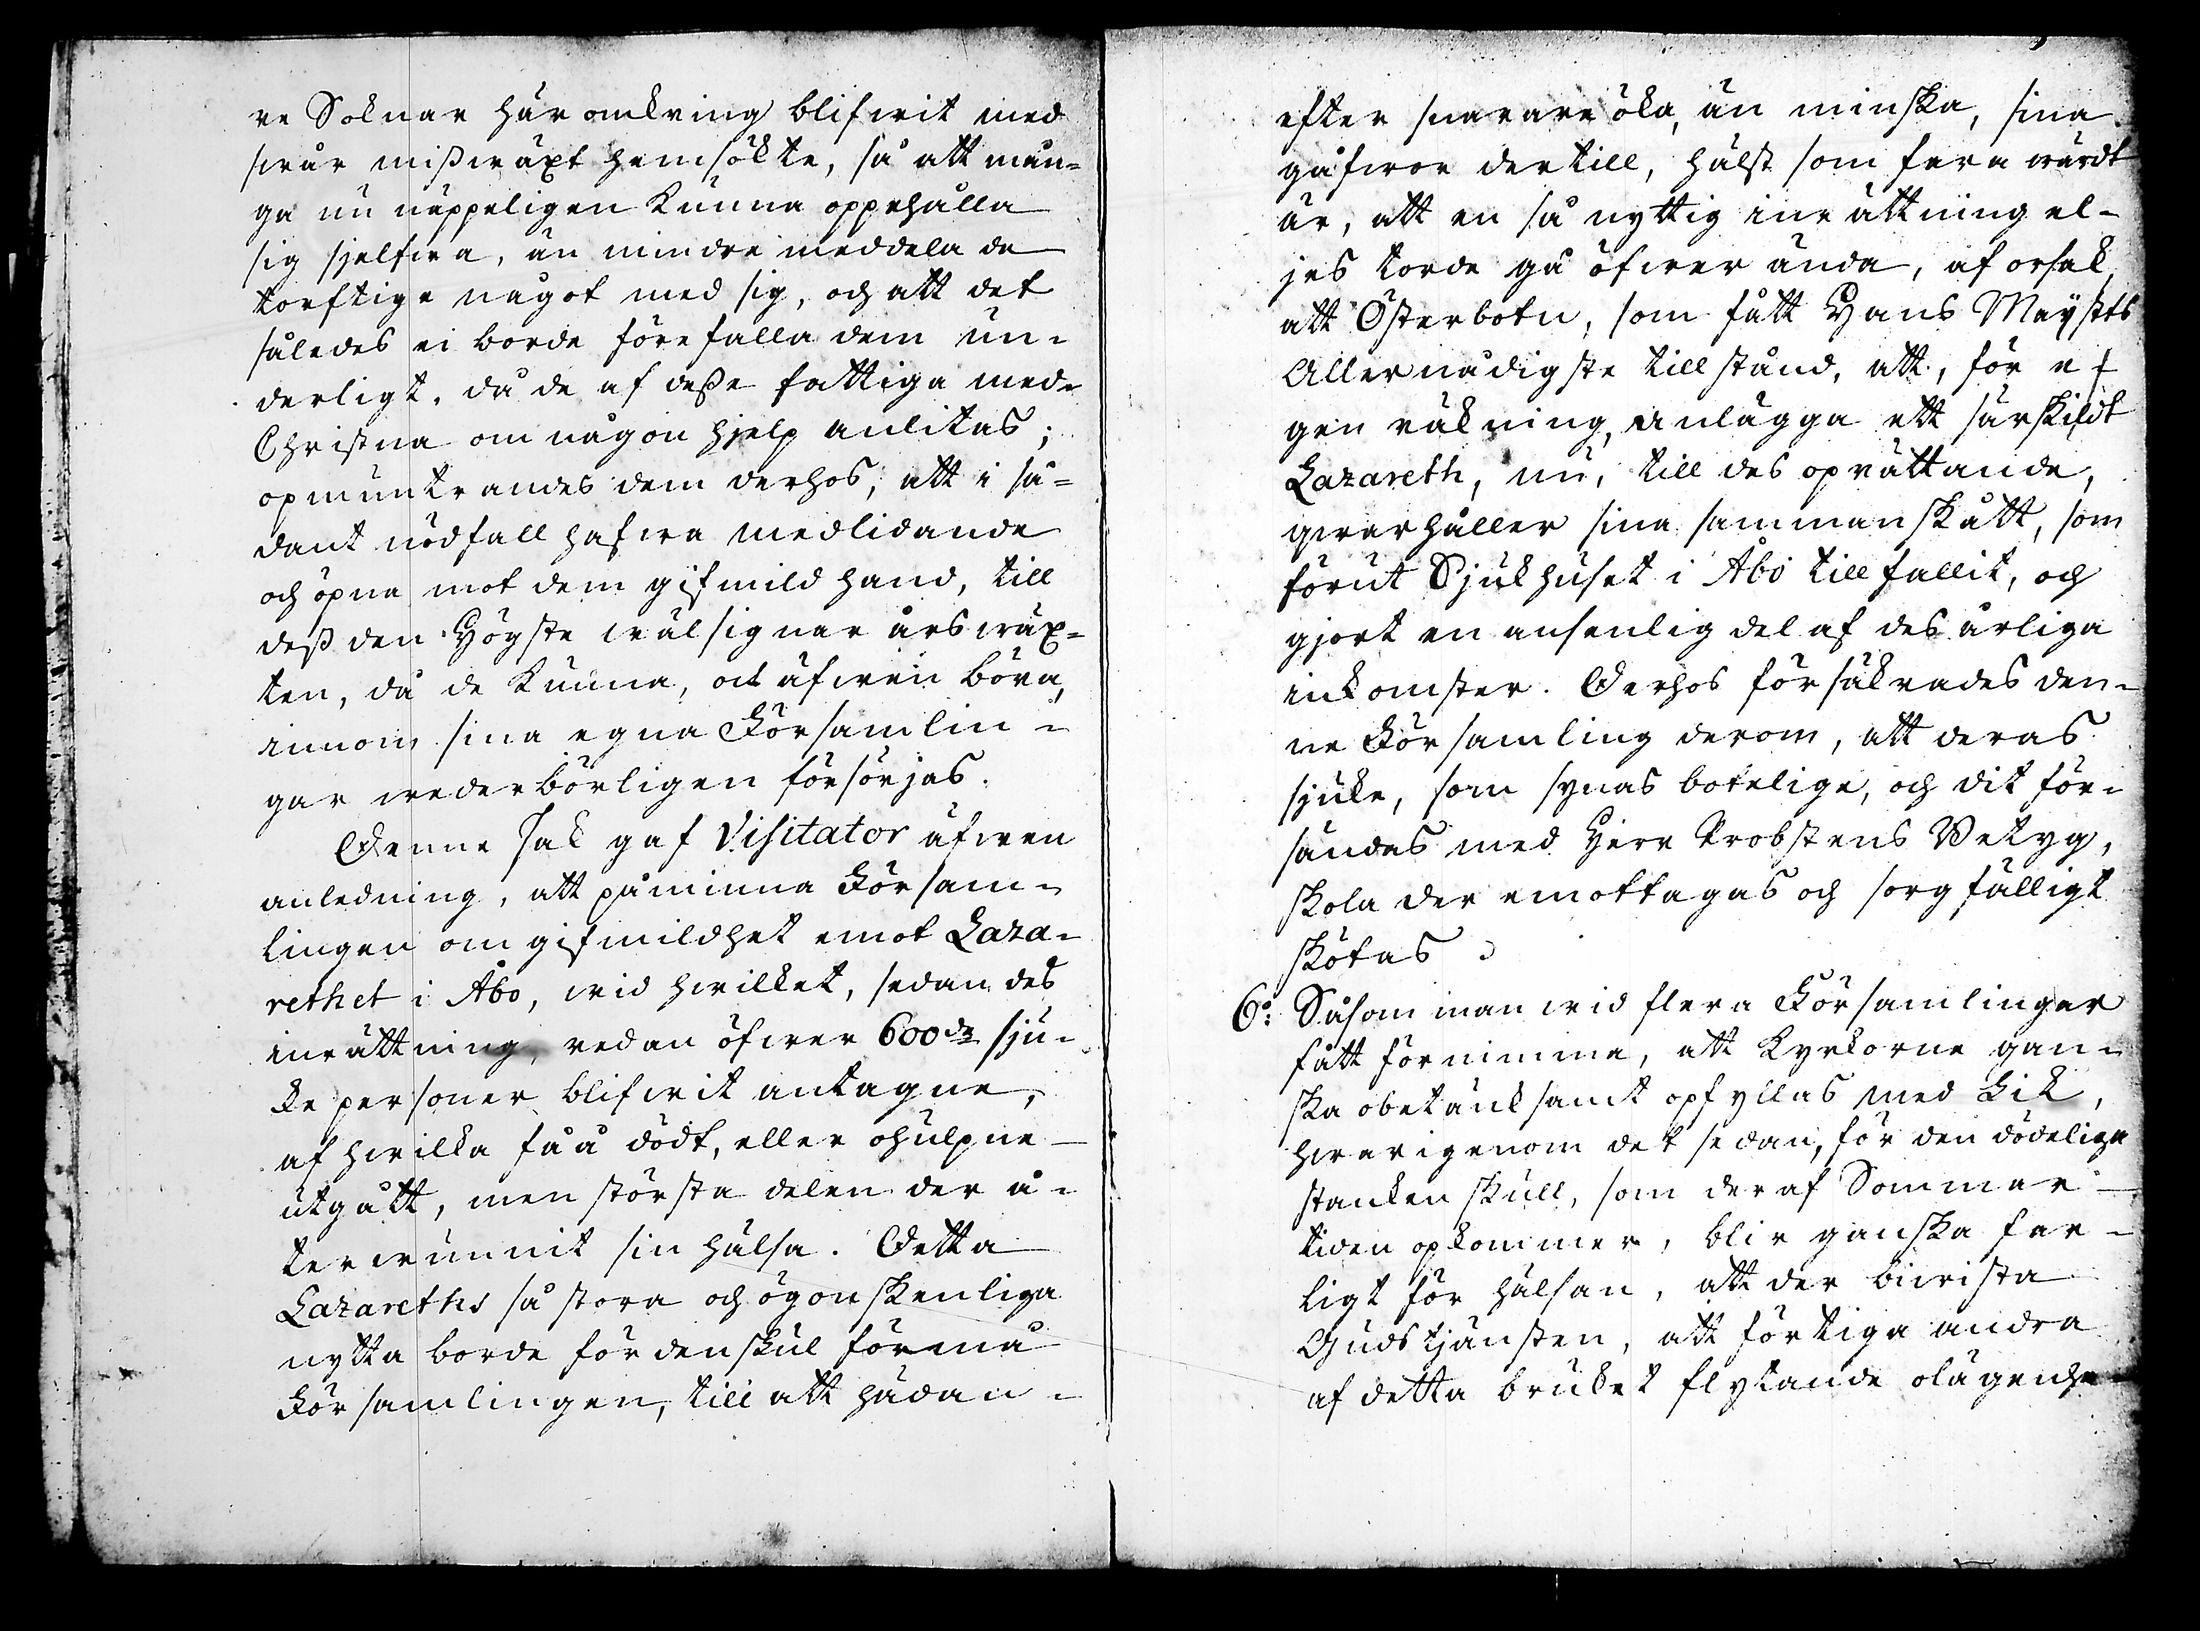 re Soknar här omkring blifwit med
swår mißwäxt hemsökte, så att mån-
ga nu näppeligen kunna oppehålla
sig sjelfwa, än mindre meddela de
torftige något med sig, och att det
således ei borde förefalla dem un-
derligt, då de af deße fattiga med-
Christna om någon hjelp anlitas;
opmuntrandes dem derhos, att i så-
dant nödfall hafwa medlidande
och öpna mot dem gifmild hand, till
deß den Högste wälsignar årswäx-
ten, då de kunna, ock äfwen böra,
innom sina egna Församlin-
gar wederbörligen försörjas.
Denne sak gaf Visitator äfwen
anledning, att påminna Försam-
lingen om gifmildhet emot Laza-
rethet i Åbo, wid hwilket, sedan des
inrättning, redan öfwer 600de sju-
ke personer blifwit antagne,
af hwilka få ä dödt, eller ohulpne
utgått, men största delen der å-
terwunnit sin hälsa. Detta
Lazareths så stora och ögonskenliga
nytta borde fördenskul förmå
Församlingen, till att hädan-
efter snarare öka, än minska, sina
gåfwor dertill, hälst som fara wärdt
är, att en så nyttig inrättning el-
jes torde gå öfwer ända, af orsak,
att Österbotn, som fått Hans Mayſtts
Allernådigste tillstånd, att, för e-
gen räkning, anlägga ett särskildt
Lazareth, nu, till des oprättande,
qwarhåller sina sammanskått, som
förut Sjukhuset i Åbo tillfallit, och
gjort en ansenlig del af des årliga
inkomster. Derhos försäkrades den-
ne Församling derom, att deras
sjuke, som synas botelige, och dit för-
sändas med Herr Probstens Betyg,
skola der emottagas och sorgfälligt
skötas.
6o: Såsom man wid flera Församlingar
fått förnimma, att kyrkorne gan-
ska obetänksamt opfyllas med Lik,
hwarigenom det sedan, för den dödeliga
stanken skull, som deraf Sommar-
tiden opkommer, blir ganska far-
ligt för hälsan, att der biwista
Gudstjänsten, att förtiga andra
af detta bruket flytande olägenhe-